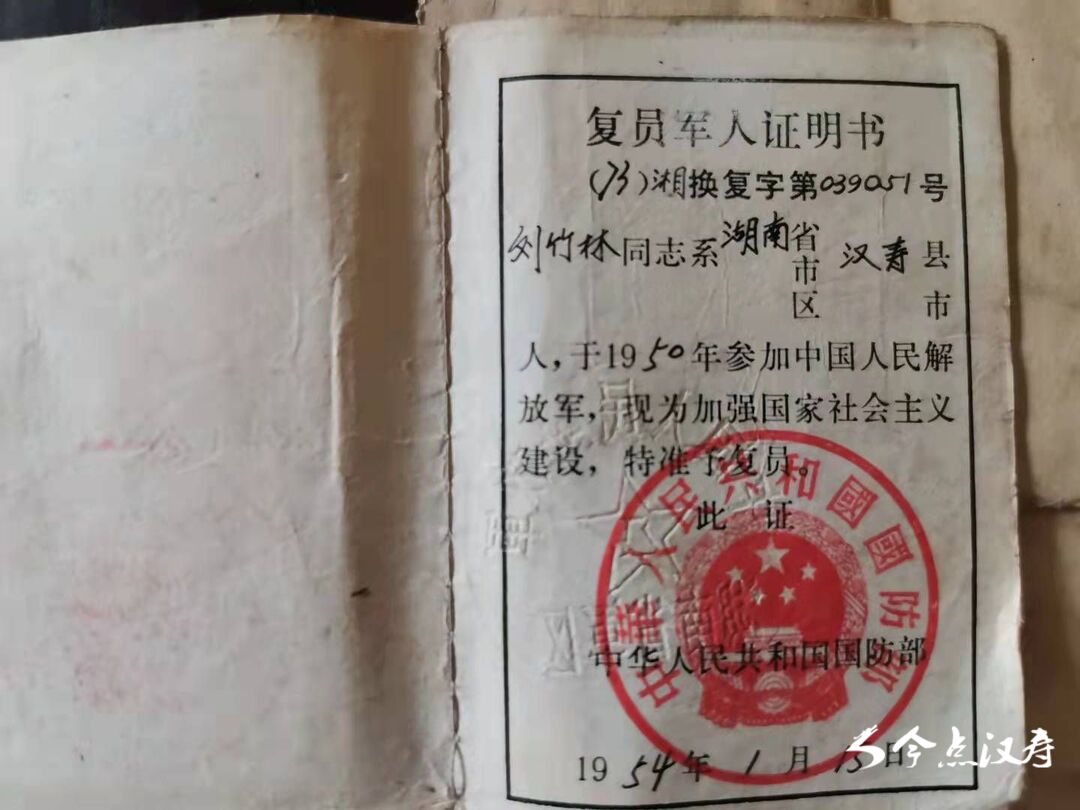 复员军人证明书
(73)湘换复字第039051号
刘竹林同志系湖南省市区 汉寿县市
人,于1950年参加中国人民解
放军,现为加强国家社会主义
建设,特准予复员。
此 证
中华人民共和国国防部
中华人民共和國國防部
1954年1月15日
今点汉寿